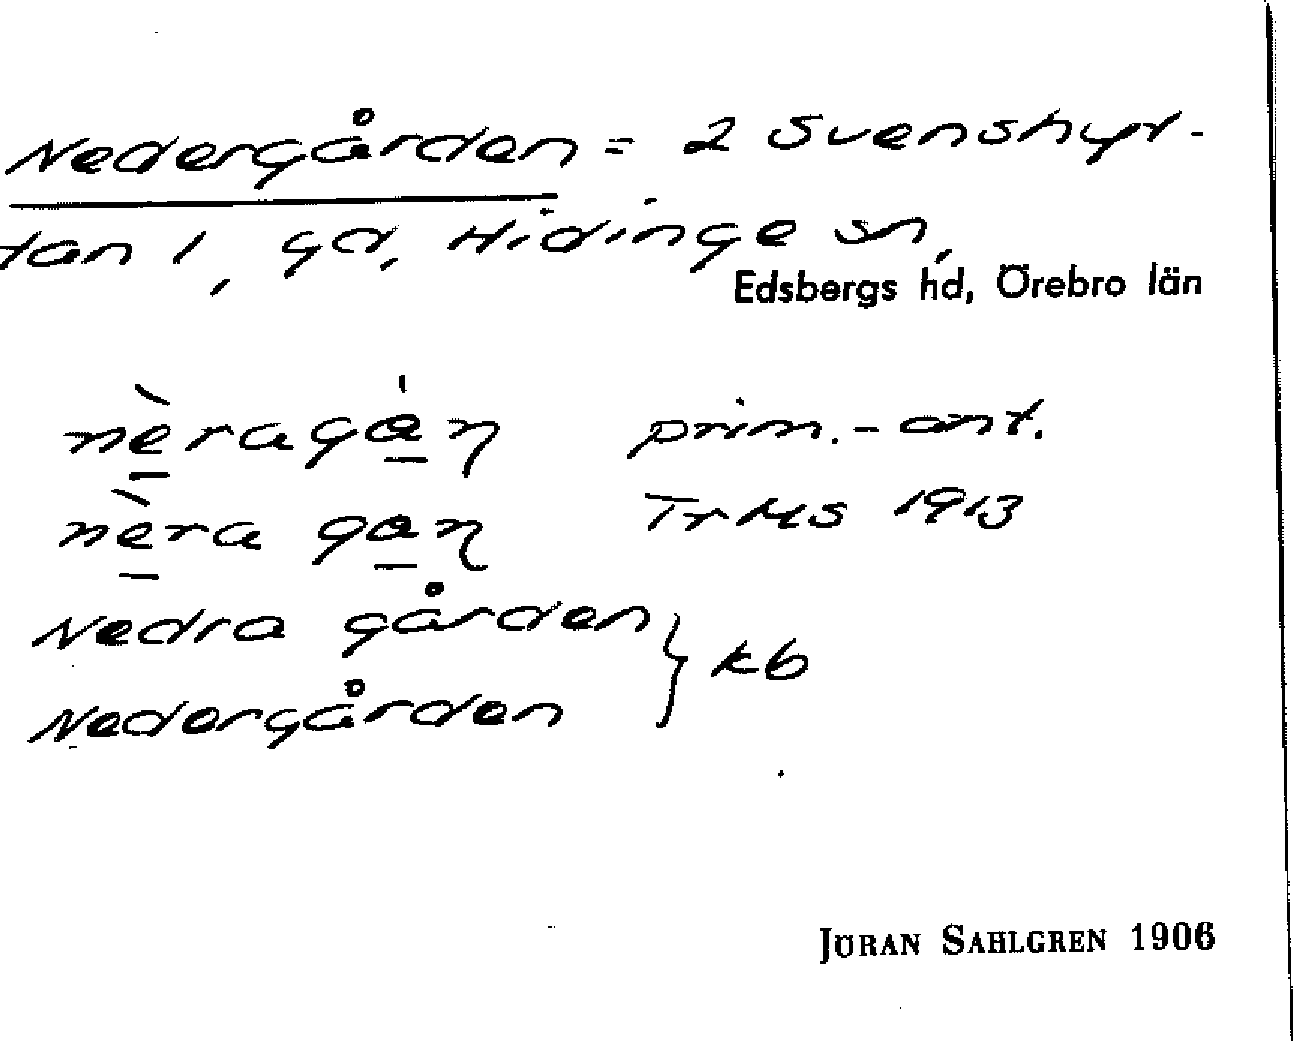 Nedergården = 2 Svenshyt-
tan 1, gd, Hidinge sn,
Edsbergs hd, Örebro län
nèragȧŋ prim.-ant.
nèra gaŋ TrHs 1913
Nedra gården } kb
Nedergården
JÖRAN SAHLGREN 1906